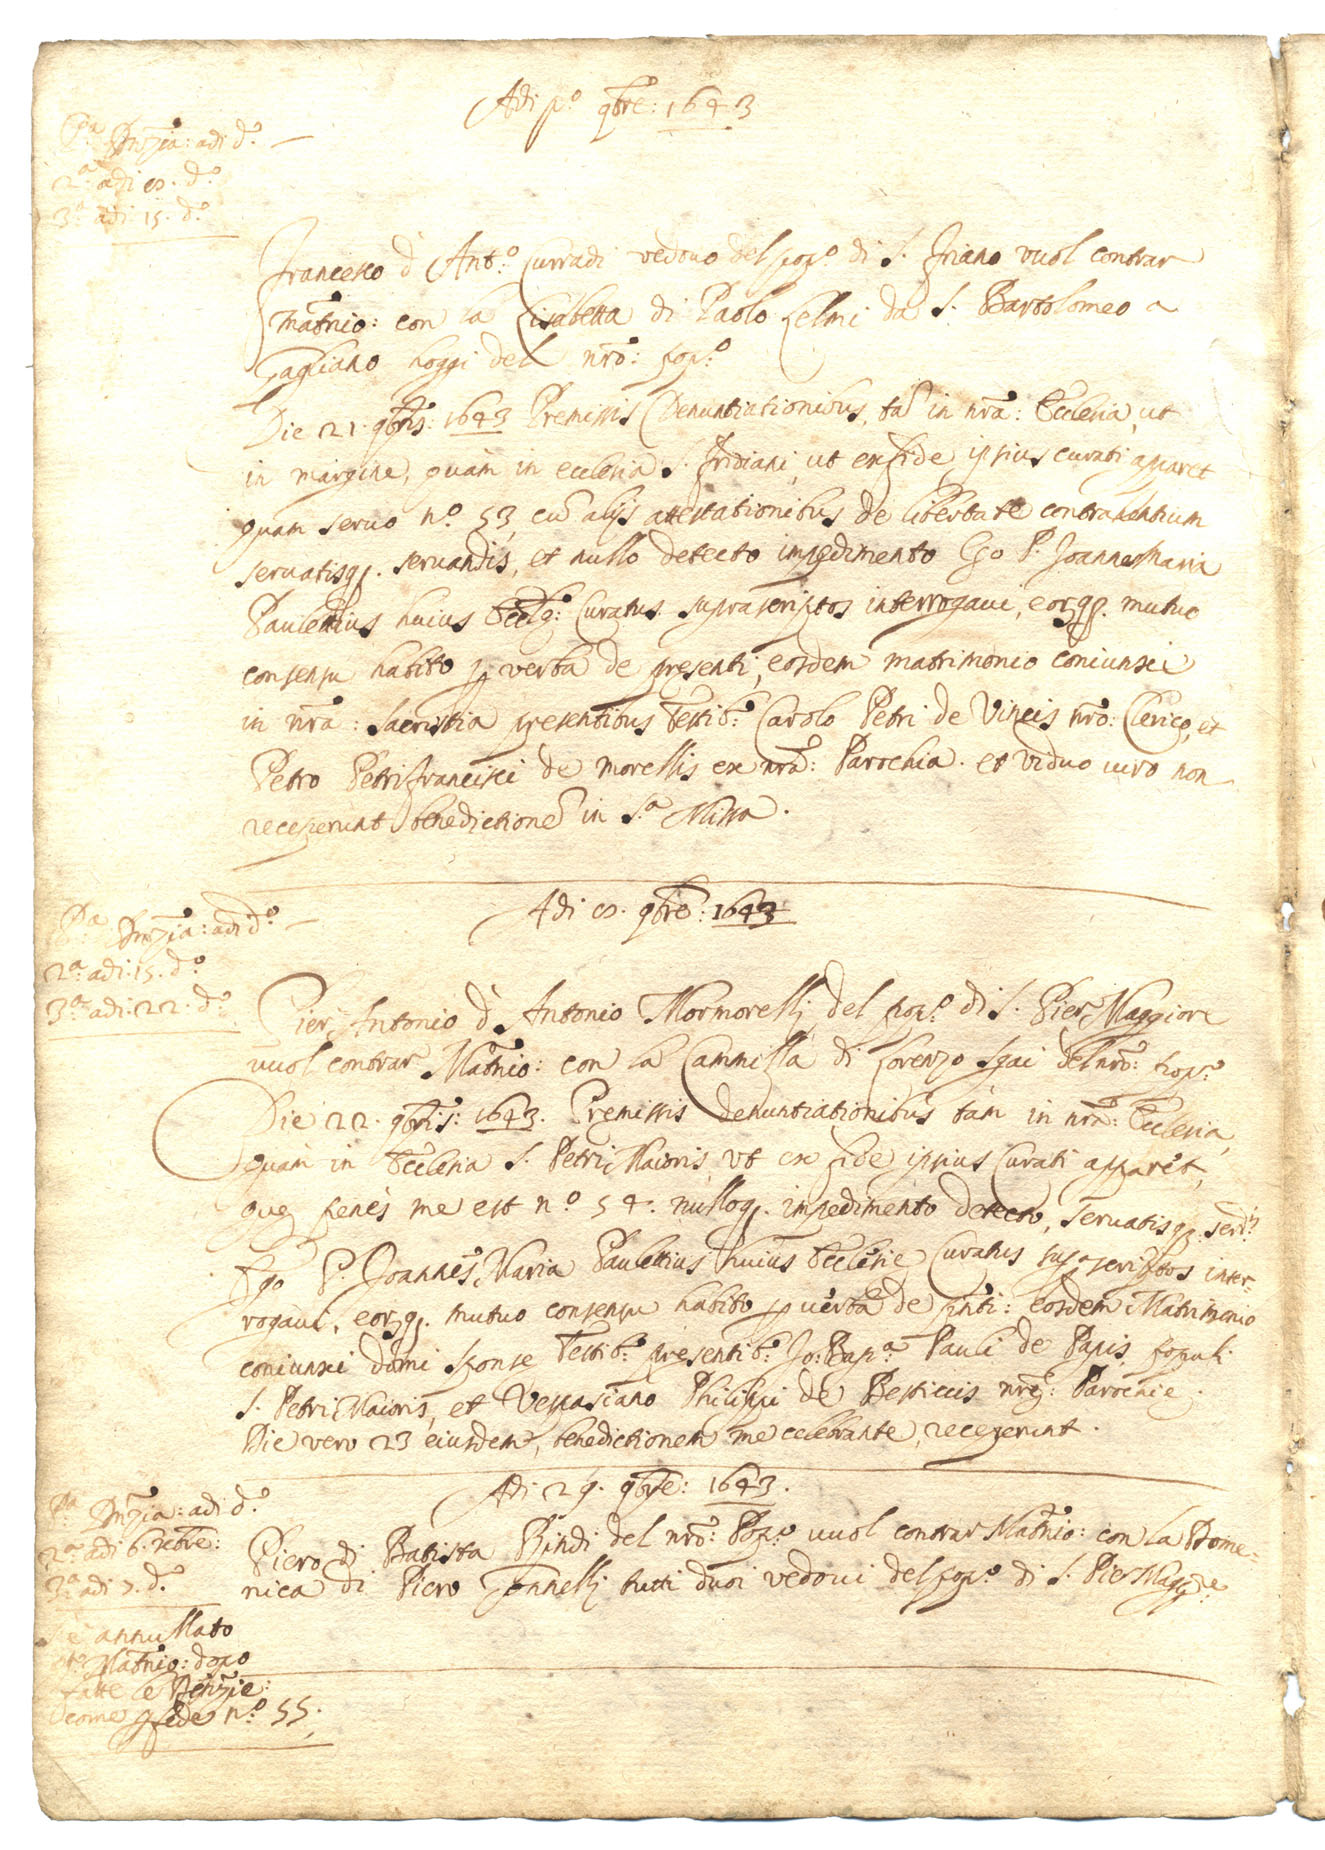 Adi pº 9bre: 1643
Pª Dnzia: adi dº
2ª adi 8. dº
3ª adi 15. dº
Francesco d Antº: Curradi vedovo del popº di S. Friano vuol contrar
matnio: con la Lisabetta di Paolo Lelmi da S. Bartolomeo a
Gagliano hoggi del nro: popº
Die 21. 9bris: 1643 Premissis Denuntiationibus, ta in nra: Ecclesia, ut
in margine, quàm in ecclesia S. Fridiani, ut ex fide ipsius curati apparet
quam servo nº 53, cu alijs attestationibus de libertate contrahentium
servatisq. servandis, et nullo detecto impedimento Ego P. Joannes Maria
Paulettius huius Eccle: Curatus suprascriptos interrogavi, eorq. mutuo
consensu habito p verba de presenti, eosdem matrimonio coniunxi
in nra: Sacristia presentibus Testib: Carolo Petri de Vincis nro: Clerico, et
Petro Petrifrancisci de Morellis ex nra: Parochia. et viduo viro non
receperunt benedictione in Sª Missa.
Adi 8. 9bre: 1643
Pª Dnzia: adi dº
2ª: adi: 15. dº
3ª: adi: 22. dº
Pier Antonio d Antonio Mormorelli del popº di S. Pier Maggiore
vuol contrar Matnio: con la Cammilla di Lorenzo Sgai del nro: popº
Die 22. 9bris: 1643. Premissis denuntiationibus tàm in nra: Ecclesia,
quàm in Ecclesia S. Petri Maioris, ut ex fide ipsius Curati apparet,
que penès me est nº 54. nulloq. impedimento detecto, servatisq. servis
Ego P. Joannes Maria Paulettius huius Ecclesie Curatus supªscriptos inter-
rogavi, eorq. mutuo consensu habito p verba de pnti: eosdem Matrimonio
coniunxi domi sponse Testib: presentib: Jo: Bapª Pauli de Papis populi
S. Petri Maioris, et Vespasiano Philippi de Besticcis nre: Parochie.
Die vero 23 eiusdem, benedictionem me celebrante, receperunt.
Adi 29. 9bre: 1643.
Pª Dnzia: adi dº
2ª adi 6. xbre:
3ª adi 7. dº
Piero di Batista Bindi del nro: Popº vuol contrar Matnio: con la Dome-
nica di Piero Tonnelli tutti duoi vedovi del popº di S. Pier Maggre
annullato
Matnio: dopo
fatte le Dnzie:
come p fede nº 55.